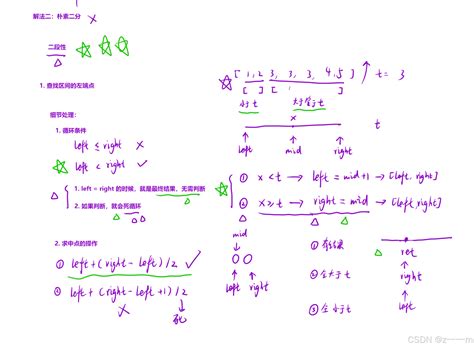 解法二：朴素二分 ×
二段性
1. 查找区间的左端点
细节处理：
1. 循环条件
left ≤ right ×
left < right ✓
1. left = right 的时候，就是最终结果，无需判断
2. 如果判断，就会死循环
2. 求中点的操作
① left + (right - left) / 2 ✓
② left + (right - left + 1) / 2
×
死
[ 1, 2 3, 3, 3, 4, 5 ] t = 3
[ ] [ ]
小于 t 大于等于 t
x
t
left mid right
① x < t → left = mid + 1 → [left, right]
② x ≥ t → right = mid → [left, right]
mid
left right
① 有结果
ret
② 全大于 t
right
③ 全小于 t
left
CSDN @z——m